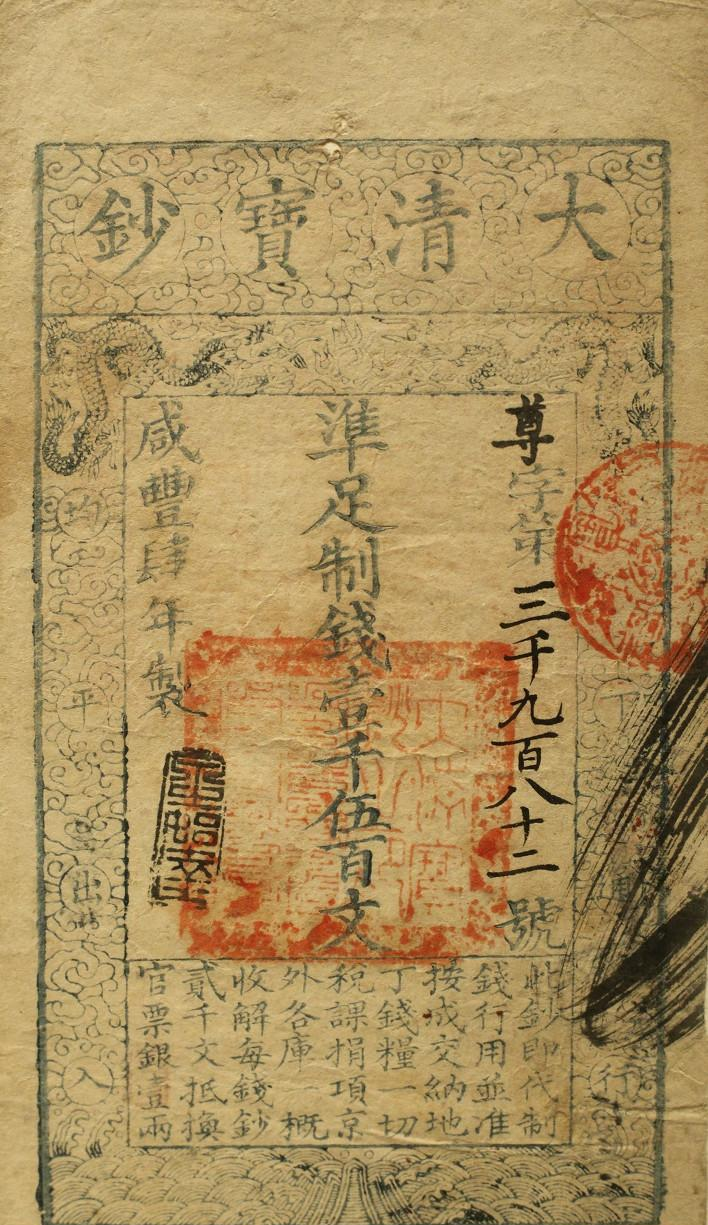 大清寶鈔
下通行
尊字第三千九百八十二號
準足制錢壹千伍百文
咸豐肆年製
均平出入
此鈔即代制
錢行用並准
按成交納地
丁錢糧一切
稅課捐項京
外各庫一概
收解每錢鈔
貳千文抵換
官票銀壹兩